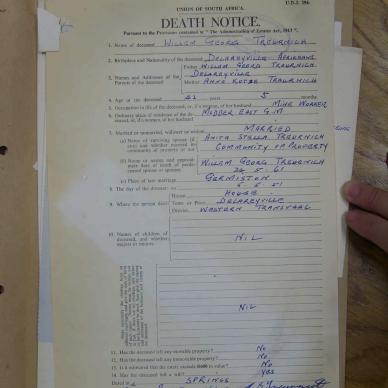 U.D.J. 294.
UNION OF SOUTH AFRICA.
DEATH NOTICE.
Pursuant to the Provisions contained in "The Administration of Estates Act, 1913".
1. Name of deceased WILLEM GEORG TREURNICH
2. Birthplace and Nationality of the deceased DELAREYVILLE AFRIKANS
3. Names and Addresses of the Parents of the deceased
Father WILLEM GEORG TREURNICH
DELAREYVILLE
Mother ANNA KOTZE TREURNICH
4. Age of the deceased 41 years 5 months
5. Occupation in life of the deceased, or, if a woman, of her husband MINE WORKER
6. Ordinary place of residence of the deceased, or, if a woman, of her husband MODDER EAST G.M
7. Married or unmarried, widower or widow MARRIED
(a) Name of surviving spouse (if any) and whether married in community of property or not
ANITA STELLA TREURNICH
COMMUNITY OF PROPERTY
(b) Name or names and approximate date of death of predeceased spouse or spouses
WILLEM GEORG TREURNICH
24 5 61
(c) Place of last marriage GERMISTON
8. The day of the decease: on 5 5 51
9. Where the person died
House HOUSE
Town or Place DELAREYVILLE
District WESTERN TRANSVAAL
10. Names of children of deceased, and whether majors or minors
NIL
NIL
11. Has the deceased left any movable property? No
12. Has the deceased left any immovable property? No
13. Is it estimated that the estate exceeds £600 in value? No
14. Has the deceased left a will? YES
Dated at SPRINGS